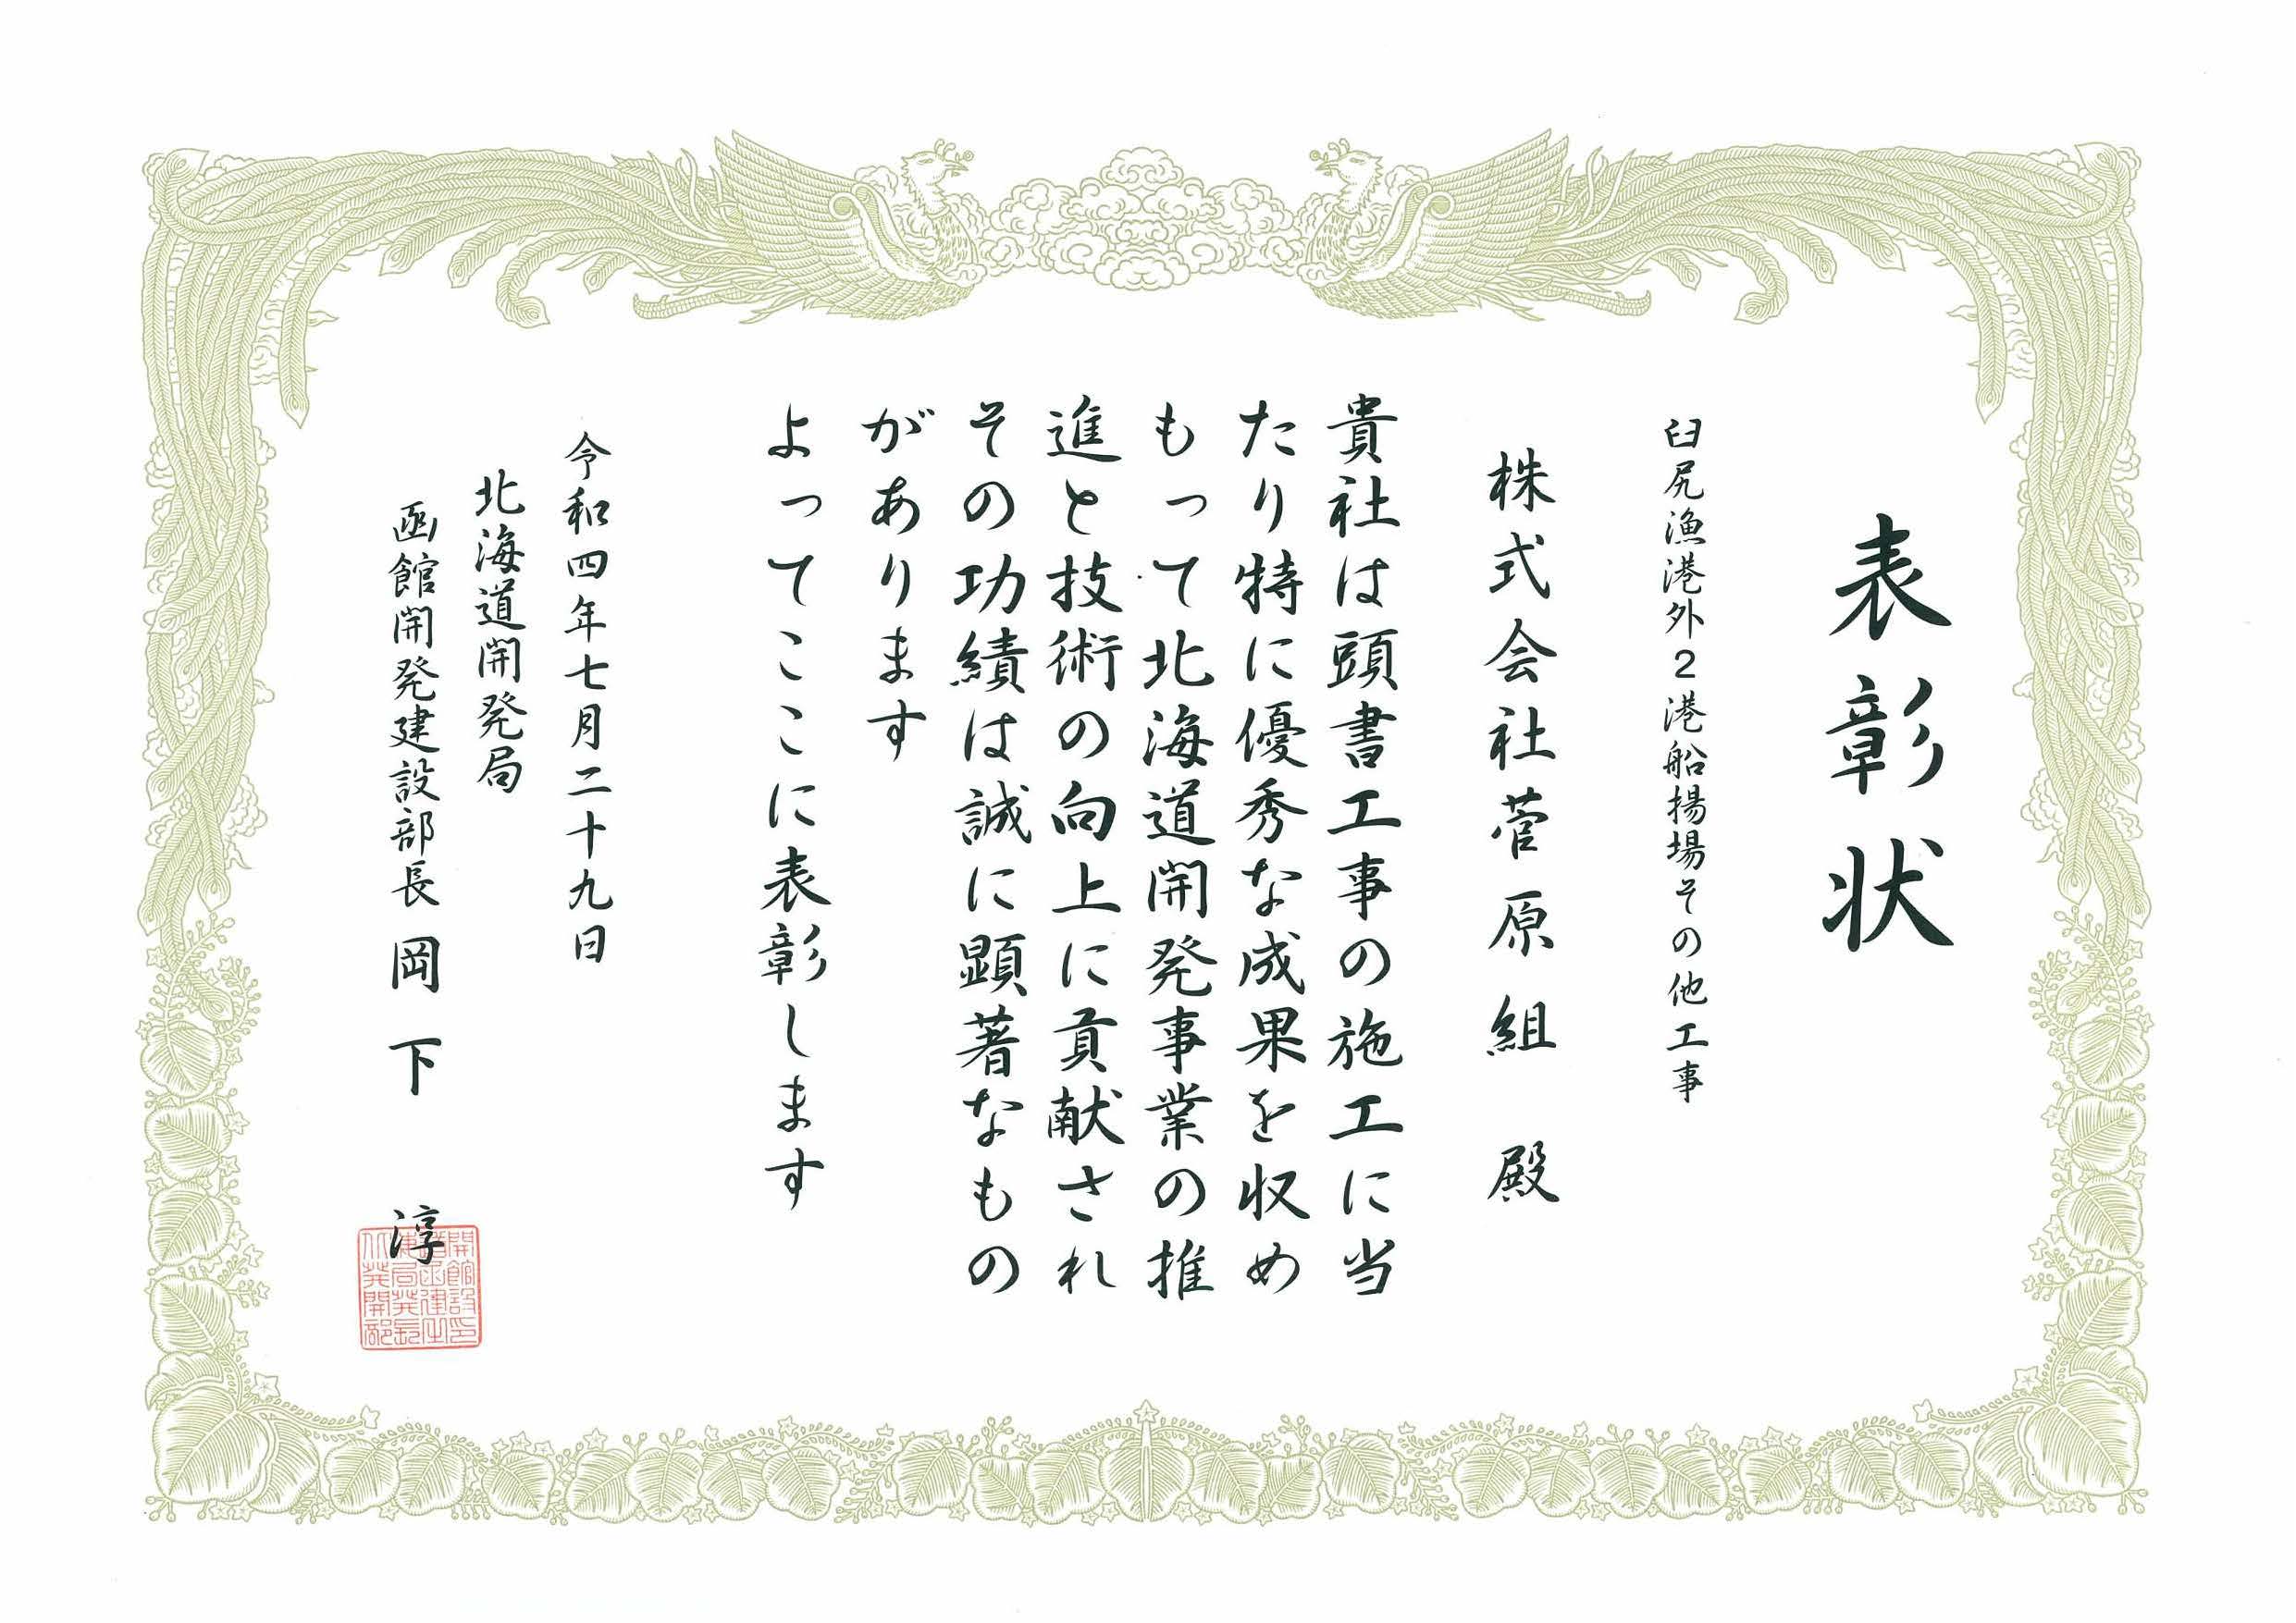 表彰状
臼尻漁港外2港船揚場その他工事
株式会社菅原組 殿
貴社は頭書工事の施工に当
たり特に優秀な成果を収め
もって北海道開発事業の推
進と技術の向上に貢献され
その功績は誠に顕著なもの
があります
よってここに表彰します
令和四年七月二十九日
北海道開発局
函館開発建設部長 岡下 淳